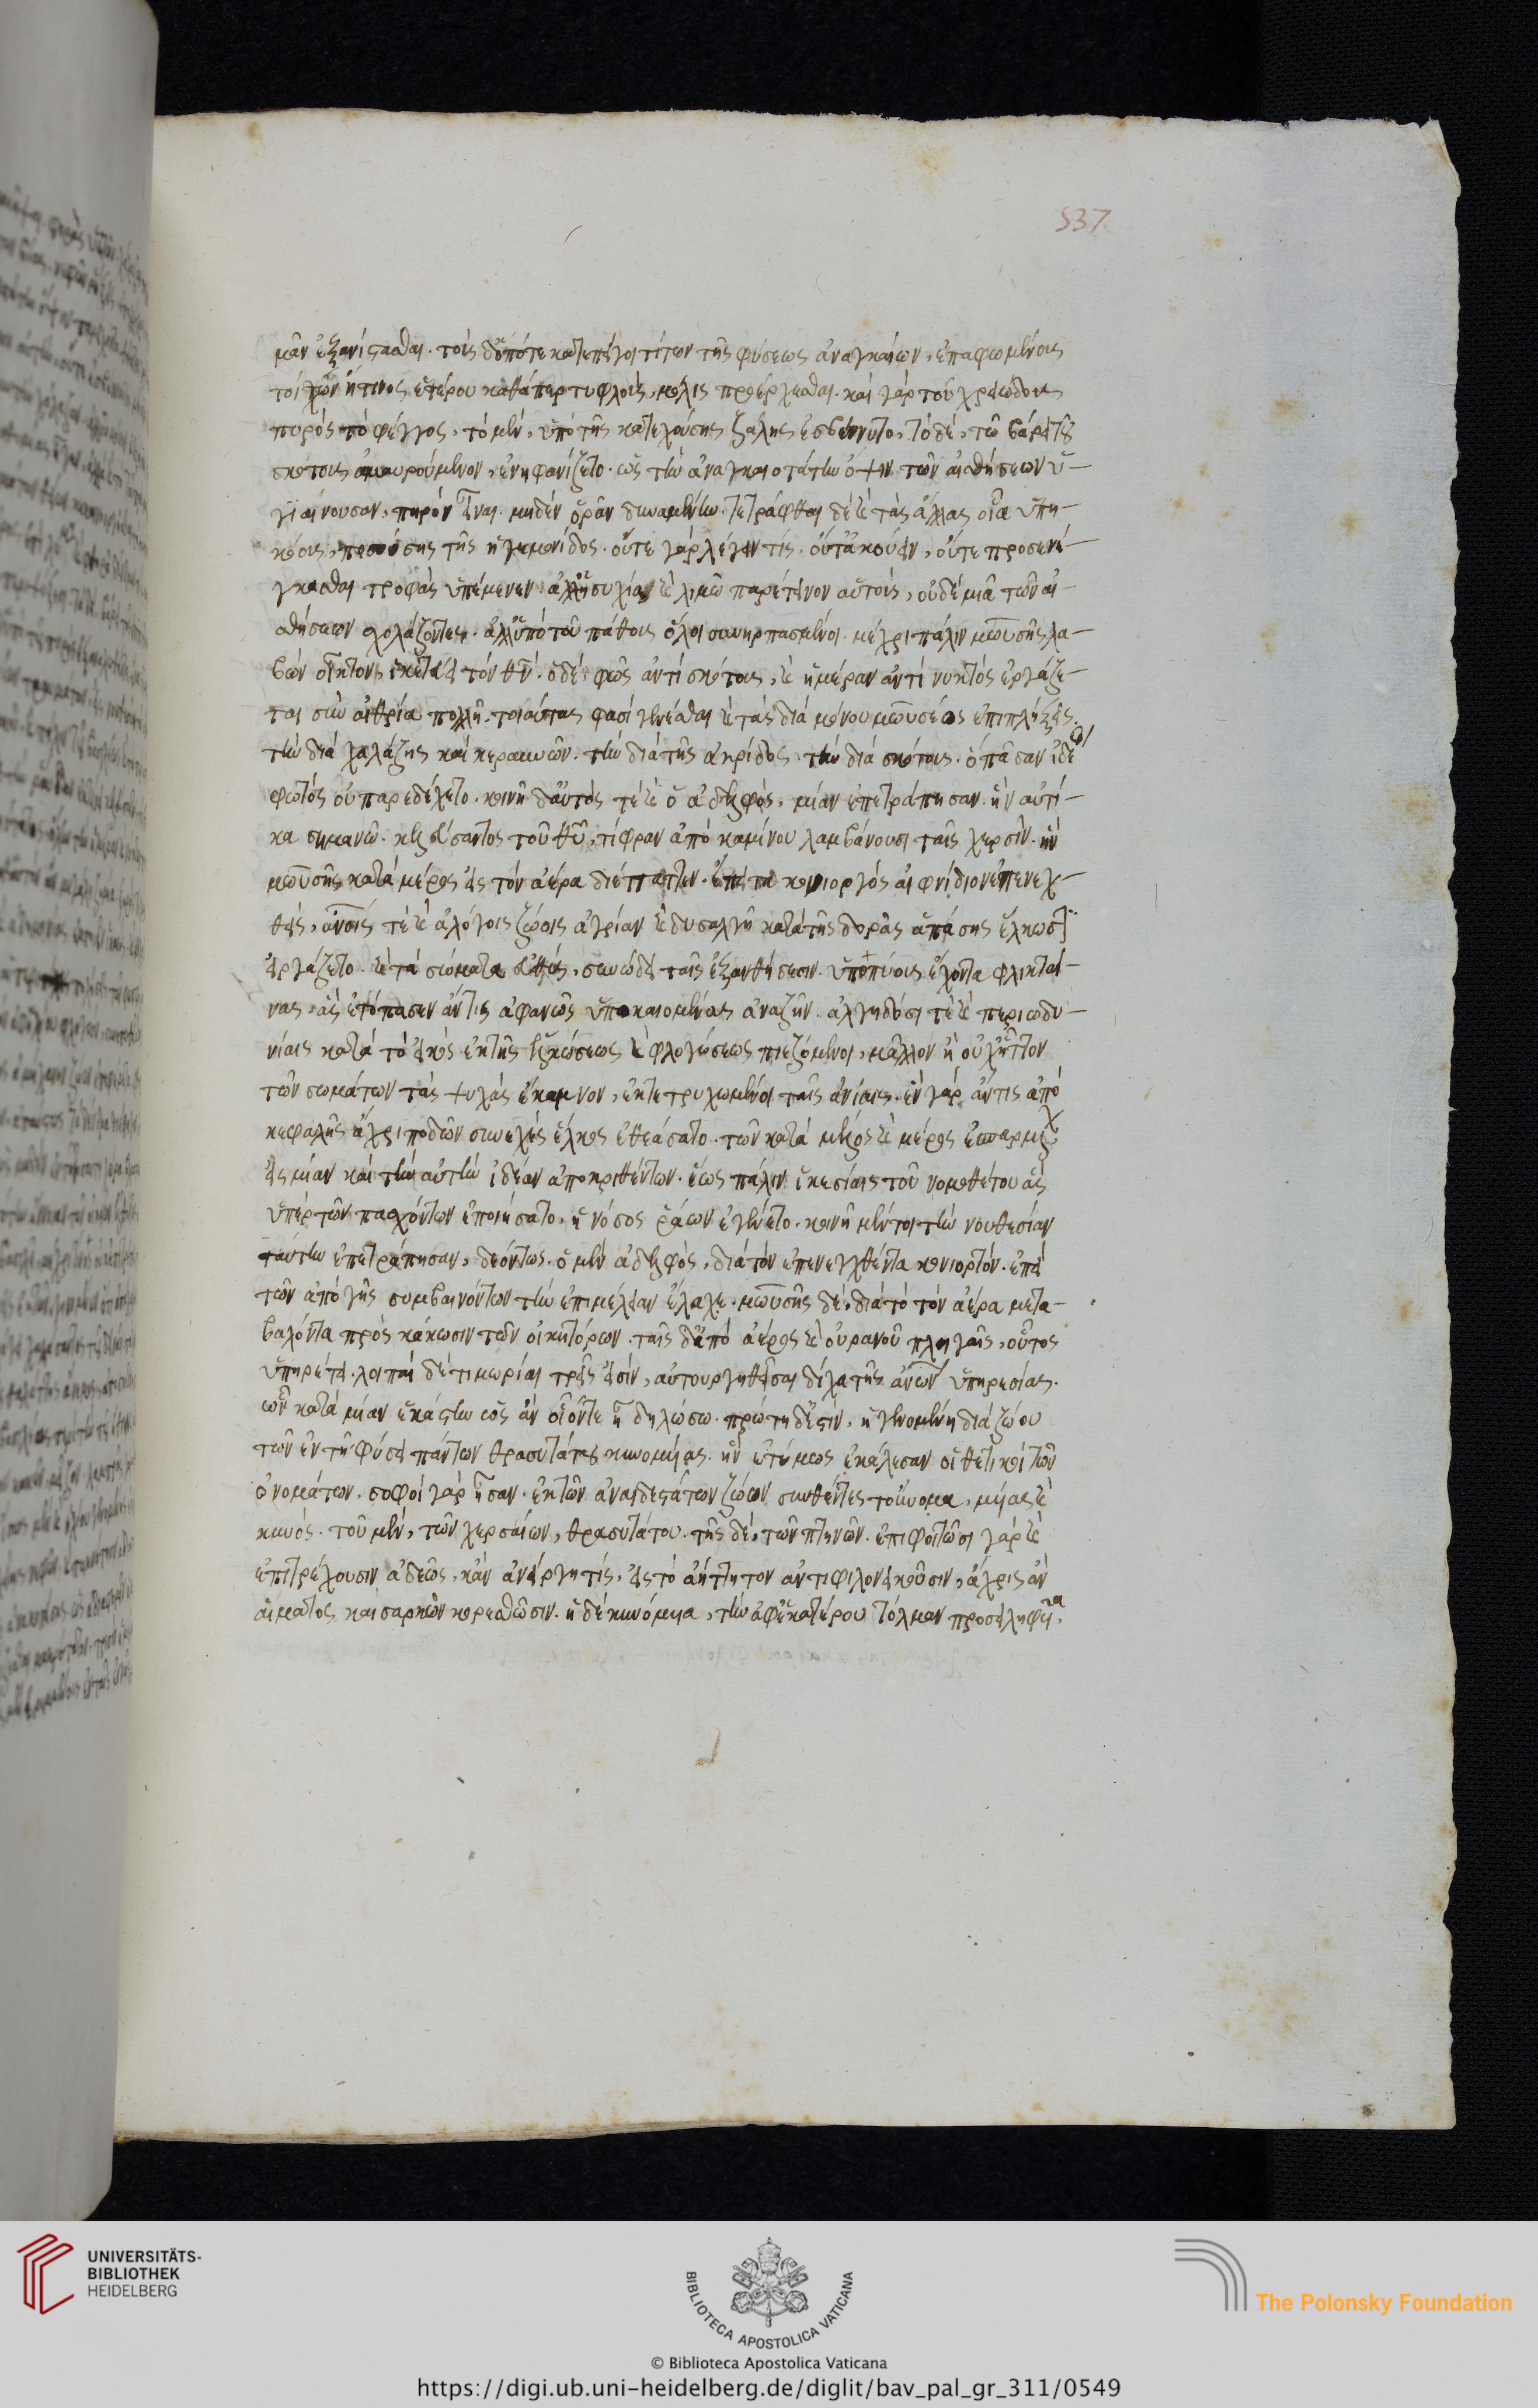 537
μᾶν ἐξανίστασθαι. τοὺς δ' ὁπότε κατεπείγοι τί τῶν τῆς φύσεως ἀναγκαίων, ἐπαφωμένους
τοίχων ἤ τινος ἑτέρου καθάπερ τυφλοὺς, μόλις προέρχεσθαι. καὶ γὰρ τοῦ χρειώδους
πυρὸς τὸ φέγγος, τὸ μὲν, ὑπὸ τῆς κατεχούσης ζάλης ἐσβέννυτο, τὸ δὲ, τῷ βάθει τοῦ
σκότους ἀμαυρούμενον, ἐνηφανίζετο. ὡς τὴν ἀναγκαιοτάτην ὄψιν τῶν αἰσθήσεων ὑ-
γιαίνουσαν, πηρὸν εἶναι. μηδὲν ὁρᾶν δυναμένην. τετράφθαι δὲ καὶ τὰς ἄλλας οἷα ὑπη-
κόους, πεσούσης τῆς ἡγεμονίδος. οὔτε γὰρ λέγειν τίς, οὔτ' ἀκούειν, οὔτε προσενέ-
γκασθαι τροφὰς ὑπέμενεν. ἀλλ' ἡσυχίᾳ καὶ λιμῷ παρέτεινον αὑτοὺς, οὐδεμιᾷ τῶν αἰ-
σθήσεων σχολάζοντες. ἀλλ' ὑπὸ τοῦ πάθους ὅλοι συνηρπασμένοι. μέχρι πάλιν μωυσῆς λα-
βὼν οἶκτον, ἱκετεύει τὸν θν. ὁ δὲ φῶς ἀντὶ σκότους, καὶ ἡμέραν ἀντὶ νυκτὸς ἐργάζε-
ται σὺν αἰθρίᾳ πολλῇ. τοιαύτας φασὶ γενέσθαι καὶ τὰς διὰ μόνου μωυσέως ἐπιπλήξεις.
τὴν διὰ χαλάζης καὶ κεραυνῶν. τὴν διὰ τῆς ἀκρίδος. τὴν διὰ σκότους. ὃ πᾶσαν ἰδέαν
φωτὸς οὐ παρεδέχετο. κοινῇ δ' αὐτός τε καὶ ὁ ἀδελφὸς, μίαν ἐπετράπησαν. ἣν αὐτί-
κα σημανῶ. κελεύσαντος τοῦ θυ, τέφραν ἀπὸ καμίνου λαμβάνουσι ταῖς χερσὶν. ἣν
μωυσῆς κατὰ μέρος εἰς τὸν ἀέρα διέπαττεν. ἔπειτα κονιορτὸς αἰφνίδιον ἐπενεχ-
θεὶς, ἀνοις τε καὶ ἀλόγοις ζώοις ἀγρίαν καὶ δυσαλγῆ κατὰ τῆς δορᾶς ἁπάσης ἕλκωσιν
εἰργάζετο. καὶ τὰ σώματα εὐθὺς, συνῴδει ταῖς ἐξανθήσεσιν. ὑποπύους ἔχοντα φλυκταί-
νας. ἃς ἐτόπασεν ἄν τις ἀφανῶς ὑποκαιομένας ἀναζεῖν. ἀλγηδόσι τε καὶ περιωδυ-
νίαις κατὰ τὸ εἰκὸς ἐκ τῆς ἑλκώσεως καὶ φλογώσεως πιεζόμενοι, μᾶλλον ἢ οὐχ ἧττον
τῶν σωμάτων τὰς ψυχὰς ἔκαμνον, ἐκτετρυχωμένοι ταῖς ἀνίαις. ἓν γὰρ ἄν τις ἀπὸ
κεφαλῆς ἄχρι ποδῶν συνεχὲς ἕλκος ἐθεάσατο. τῶν κατὰ μέλος καὶ μέρος
εἰς μίαν καὶ τὴν αὐτὴν ἰδέαν ἀποκριθέντων. ἕως πάλιν ἱκεσίαις τοῦ νομοθέτου ἃς
ὑπὲρ τῶν πασχόντων ἐποιήσατο, ἡ νόσος ῥάων ἐγένετο. κοινῇ μέντοι τὴν νουθεσίαν
ταύτην ἐπετράπησαν, δεόντως. ὁ μὲν ἀδελφὸς, διὰ τὸν ἐπενεχθέντα κονιορτὸν. ἐπεὶ
τῶν ἀπὸ γῆς συμβαινόντων τὴν ἐπιμέλειαν ἔλαχε. μωυσῆς δὲ, διὰ τὸ τὸν ἀέρα μετα-
βαλόντα πρὸς κάκωσιν τῶν οἰκητόρων. ταῖς δ' ἀπὸ ἀέρος καὶ οὐρανοῦ πληγαῖς, οὗτος
ὑπηρέτει. λοιπαὶ δὲ τιμωρίαι τρεῖς εἰσὶν, αὐτουργηθεῖσαι δίχα τῆς ἀνων ὑπηρεσίας.
ὧν κατὰ μίαν ἑκάστην ὡς ἂν οἷόν τε ᾖ δηλώσω. πρώτη δ' ἐστὶν, ἡ γενομένη διὰ ζώου
τῶν ἐν τῇ φύσει πάντων θρασυτάτου κυνομυίας. ἣν ἐτύμως ἐκάλεσαν οἱ θετικοὶ τῶν
ὀνομάτων. σοφοὶ γὰρ ἦσαν. ἐκ τῶν ἀναιδεστάτων ζώων συνθέντες τοὔνομα, μυίας καὶ
κυνός. τοῦ μὲν, τῶν χερσαίων, θρασυτάτου. τῆς δὲ, τῶν πτηνῶν. ἐπιφοιτῶσι γὰρ καὶ
ἐπιτρέχουσιν ἀδεῶς, κἂν ἀνείργη τίς, εἰς τὸ ἀήττητον ἀντιφιλονεικοῦσιν, ἄχρις ἂν
αἵματος καὶ σαρκῶν κορεσθῶσιν. ἡ δὲ κυνόμυια, τὴν ἀφ' ἑκατέρου τόλμαν προσειληφυῖα,
UNIVERSITÄTS-
BIBLIOTHEK
HEIDELBERG
BIBLIOTECA APOSTOLICA VATICANA
© Biblioteca Apostolica Vaticana
The Polonsky Foundation
https://digi.ub.uni-heidelberg.de/diglit/bav_pal_gr_311/0549